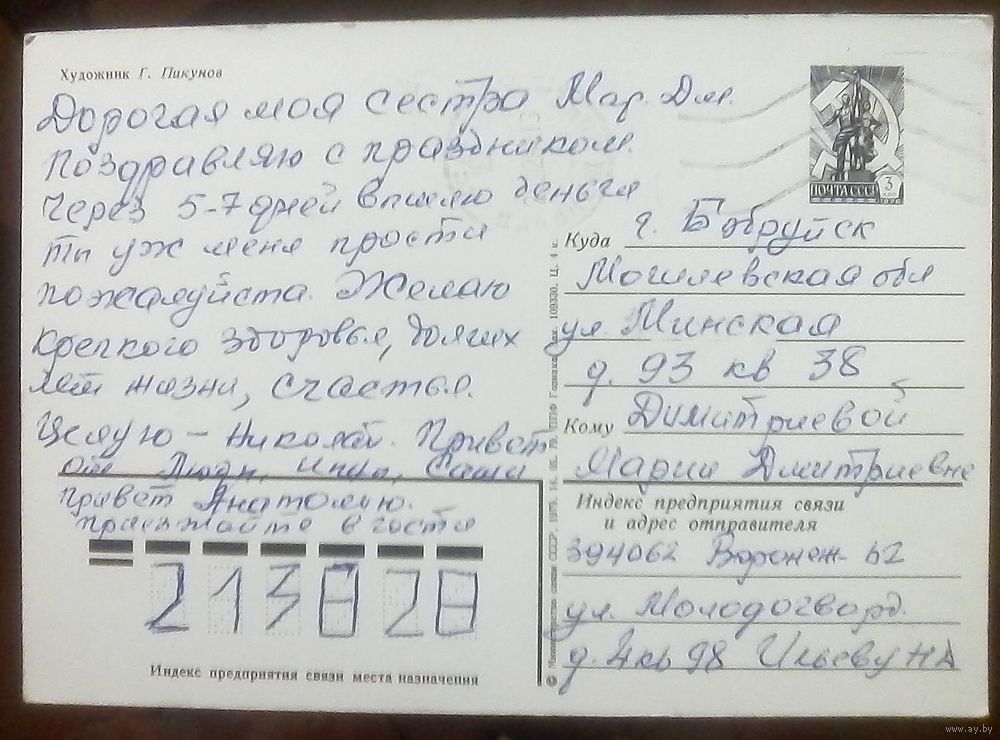 Художник Г. Пикунов
Дорогая моя сестра Мар. Дм.
Поздравляю с праздником.
Через 5-7 дней вышлю деньги
Ты уж меня прости
пожалуйста. Желаю
крепкого здоровья, долгих
лет жизни, счастья.
Целую – Николай. Привет
от Люды, Саши
привет Анатолию.
приезжайте в гости
213820
Индекс предприятия связи места назначения
ПОЧТА СССР 3 КОП
Куда г. Бобруйск
Могилевская обл
ул. Минская
д. 93 кв 38
Кому Димитриевой
Марии Дмитриевне
Индекс предприятия связи
и адрес отправителя
394062 Воронеж-62
ул. Молодогвард.
д. 4 кв 98 Ильеву НА
© Министерство связи СССР, 1978.
www.ay.by